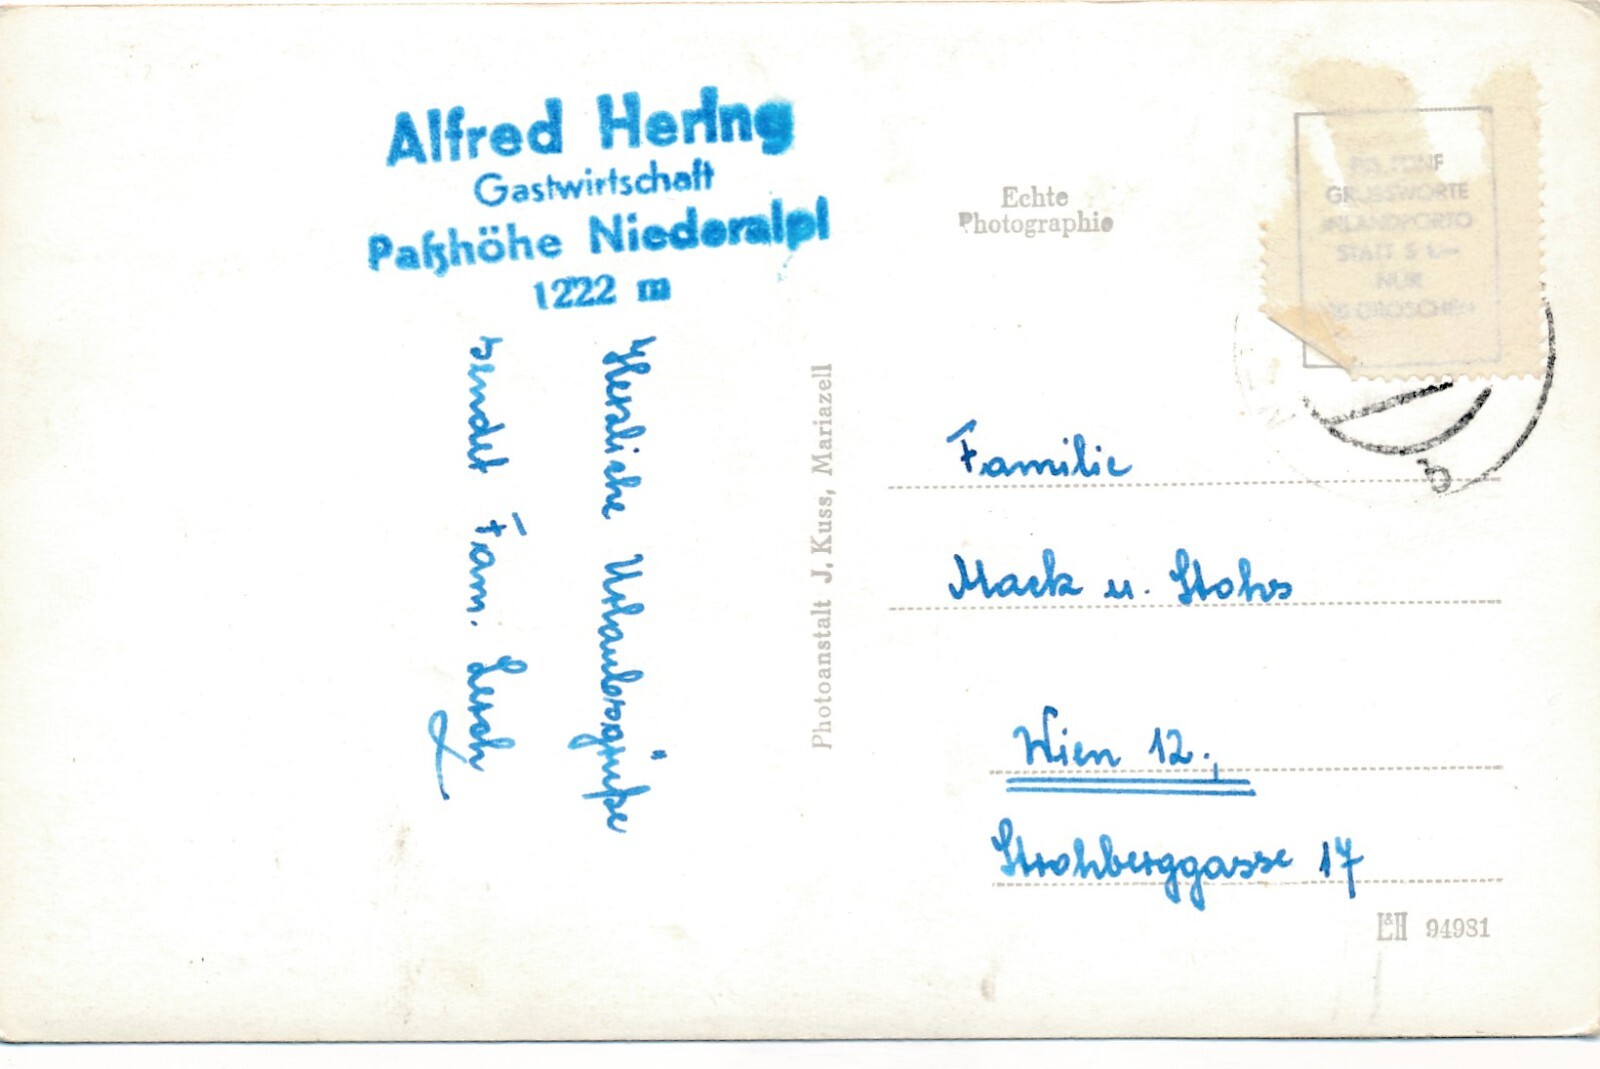 Alfred Hering
Gastwirtschaft
Paßhöhe Niederalpl
1222 m
Herzliche Urlaubsgrüße
sendet Fam. Lersch
Photoanstalt J. Kuss, Mariazell
Echte
Photographie
FÜNF
GRUSSWORTE
INLANDPORTO
STATT S 1.—
NUR
GROSCHEN
Familie
Mack u. Stohs
Wien 12.,
Strohberggasse 17
L&H 94981